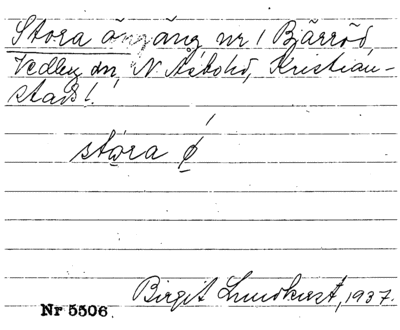 Stora ängäng nr 1 Bärröd,
Vedby sn, N Åsbohd, Kristian-
stads l.
stora
Birgit Lundkvist, 1937.
Nr 5506